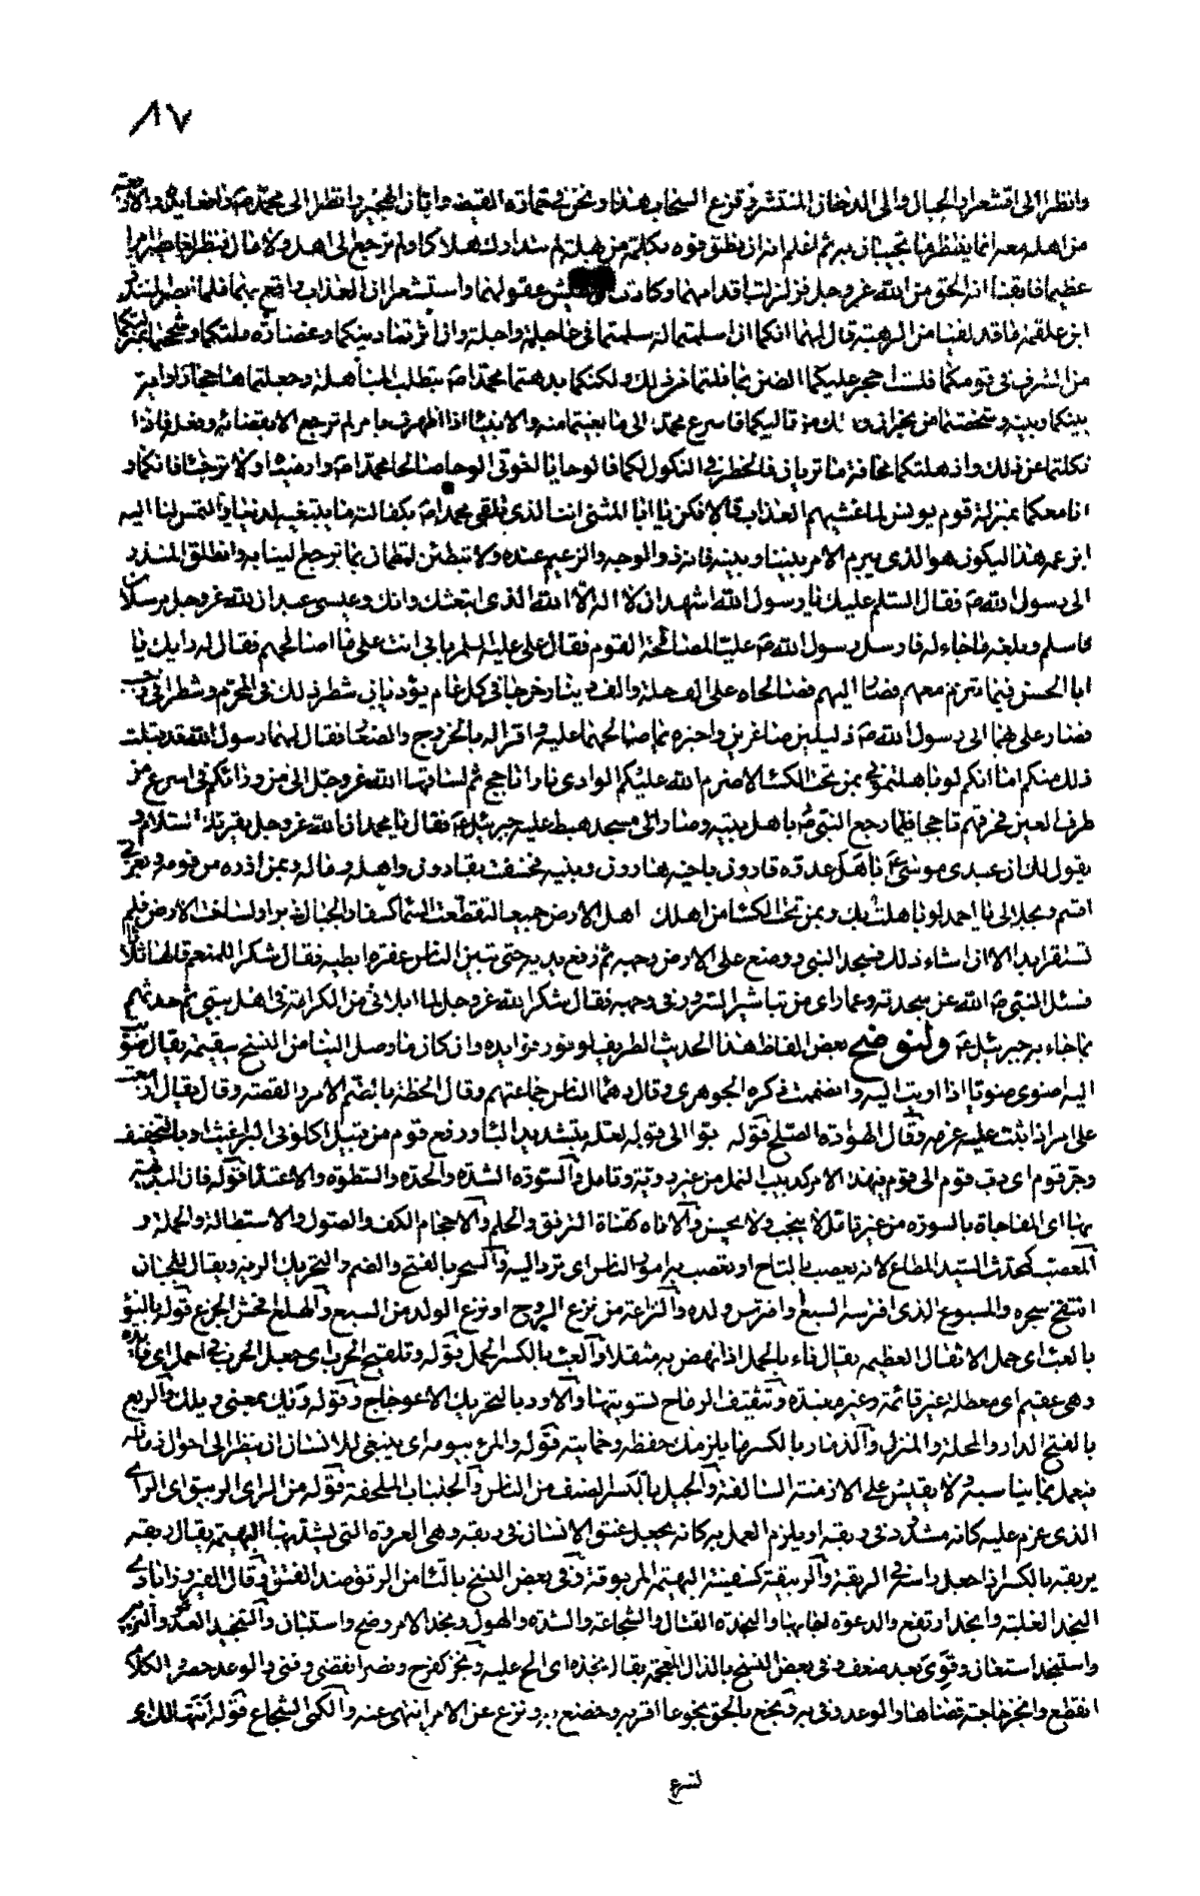 ٨٧
وانظرا الى اقشعرار الجبال والى الدخان المنتشر وقزع السحاب هذا ونحن في حمارة القيظ وابان الهجير وانظرا الى محمد ص رافعا يديه والاربعة
من اهله معه انما ينتظر ما تجيبان به ثم اعلم انه ان نطق فوه بكلمة من بهلة لم نتدارك هلاكا ولم نرجع الى اهل ولا مال فنظرا فابصرا امرا
عظيما فايقنا انه الحق من الله عز وجل فزلزلت اقدامهما وكادت ان تطيش عقولهما واستشعرا ان العذاب واقع بهما فلما ابصر المنذر
ابن علقمة ما قد لقيا من الرهبة قال لهما انكما ان اسلمتما له سلمتما في عاجله واجله وان اثرتما دينكما وغضارة ملتكما وشححتما بمنزلتكما
من الشرف في قومكما فلست احجر عليكما الضن بما نلتما من ذلك ولكنكما بدهتما محمدا ص بتطلب المباهلة وجعلتماها حجازا واية
بينكما وبينه وشخصتما من نجران و ذلك من تاليكما فاسرع محمد الى ما بغيتما منه والانبياء اذا اظهرت بامر لم ترجع الا بقضائه وفعله فاذا
نكلتما عن ذلك واذهلتكما مخافة ما تريان فالحظ في النكول لكما فالوحا يا اخوتي الوحا صالحا محمدا ص وارضياه ولا ترجئا فانكما و
انا معكما بمنزلة قوم يونس لما غشيهم العذاب قالا فكن يا ابا المثنى انت الذي تلقى محمدا ص بكفالة ما يبتغيه لدينا والتمس لنا اليه
ابن عمه هذا ليكون هو الذي يبرم الامر بيننا وبينه فانه ذو الوجه والزعيم عنده ولا تبطئن لنطمئن بما ترجع الينا به وانطلق المنذر
الى رسول الله ص فقال السلام عليك يا رسول الله اشهد ان لا اله الا الله الذي ابتعثك وانك وعيسى عبدان لله عز وجل مرسلان
فاسلم وبلغه ما جاء له فارسل رسول الله ص عليا لمصالحة القوم فقال علي عليه السلام بابي انت على ما اصالحهم فقال له رايك يا
ابا الحسن فيما تبرم معهم فصار اليهم فصالحاه على الف حلة والف دينار خرجا في كل عام يؤديان شطر ذلك في المحرم وشطرا في رجب
فصار علي بهما الى رسول الله ص ذليلين صاغرين واخبره بما صالحهما عليه واقرا له بالخرج والصغار فقال لهما رسول الله قد قبلت
ذلك منكم اما انكم لو باهلتموني بمن تحت الكساء لاضرم الله عليكم الوادي نارا تاجج ثم لساقها الله عز وجل الى من ورائكم في اسرع من
طرف العين فحرقهم تاججا فلما رجع النبي ص باهل بيته وصار الى مسجده هبط عليه جبرئيل ع فقال يا محمد ان الله عز وجل يقرئك السلام و
يقول لك ان عبدي موسى ع باهل عدوه قارون باخيه هارون وبنيه فخسفت بقارون واهله وماله وبمن ازره من قومه وبعزتي
اقسم وبجلالي يا احمد لو باهلت بك وبمن تحت الكساء من اهلك اهل الارض جميعا لتقطعت السماء كسفا والجبال زبرا ولساخت الارض فلم
تستقر ابدا الا ان اشاء ذلك فسجد النبي ص ووضع على الارض وجهه ثم رفع يديه حتى تبين للناس عفرة ابطيه فقال شكرا للمنعم قالها ثلاثا
فسئل النبي ص الله عن سجدته وعما راى من تباشير السرور في وجهه فقال شكرا لله عز وجل لما ابلاني من الكرامة في اهل بيتي ثم حدثهم
بما جاء به جبرئيل ع ولنوضح بعض الفاظ هذا الحديث الطريف لوفور فوايده وان كان ما وصل الينا من النسخ سقيمة يقال ضويت
اليه اضوي ضويا اذا اويت اليه وانضممت ذكره الجوهري وقال دهماء الناس جماعتهم وقال الخطة بالضم الامر والقصة وقال يقال ازمعت
على امر اذا ثبت عليه عزمه وقال الهوادة الصلح قوله بتوا الى قوله لعله بتشديد الباء ورفع قوم من قبيل اكلوني البراغيث او بالتخفيف
وجر قوم اي دب قوم الى قوم فهذا الامر كدبيب النمل من غير روية وتامل والسورة الشدة والحدة والسطوة والاعتداء قوله فان البديهة
بها اي المفاجاة بالسورة من غير تامل لا ينجب ولا يحسن والاناة كقناة الترفق والحلم والاحجام الكف والصول والاستطالة والحملة و
المعصب كمحدث السيد المطاع لانه يعصب بالتاج او تعصب به امور الناس اي ترد اليه والسحر بالفتح والضم والتحريك الرية ويقال للجبان
انتفخ سحره والمسبوع الذي افترسه السبع وافترس ولده والنزاعة من نزع الروح او نزع الولد من السبع والهلع افحش الجزع قوله بالنوء
بالعبء اي حمل الاثقال العظيمة يقال ناء بالحمل اذا نهض به مثقلا والعبء بالكسر الحمل قوله وتلقيح الحرب اي جعل الحرب ذات حمل اي فائدة
وهي عقيم اي معطلة غير قائمة وغير مفيدة وتثقيف الرماح تسويتها والاود بالتحريك الاعوجاج وقوله ويك بمعنى ويلك والربع
بالفتح الدار والمحلة والمنزل والذمار بالكسر ما يلزمك حفظه وحمايته قوله والمرء بيومه اي ينبغي للانسان ان ينظر الى احوال زمانه
فيعمل بما يناسبه ولا يقيس على الازمنة السالفة والجيل بالكسر الصنف من الناس والجلباب الملحفة قوله من الراي الربيق اي الراي
الذي عزم عليه كانه مشدود في ربقة او يلزم العمل به كانه يجعل عنق الانسان في ربقة وهي العروة التي يشد بها البهيمة يقال ربقه
يربقه بالكسر اذا جعل راسه في الربقة والربيقة كسفينة البهيمة المربوقة وفي بعض النسخ بالتاء من الرتق ضد الفتق وقال الفيروزابادي
النجد الغلبة وانجد ارتفع والدعوة اجابها والنجدة القتال والشجاعة والشدة والهول ونجد الامر وضح واستبان والتنجيد العدو والتزيين
واستنجد استعان وقوي بعد ضعف وفي بعض النسخ بالذال المعجمة يقال نجذه اي الح عليه ونجز كفرح ونصر انقضى وفنى والوعد حضر والكلام
انقطع وانجز حاجته قضاها والوعد وفى به وبخع بالحق بخوعا اقر به وخضع له ونزع عن الامر انتهى عنه والكمي الشجاع قوله انتهالك
لشرع